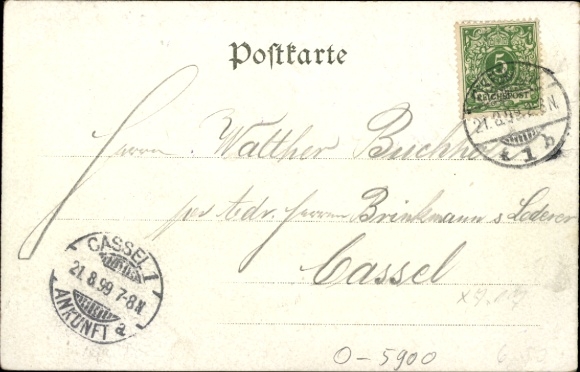 Postkarte
5
REICHSPOST
21.8.99
* 1 b
Herrn Walther Buchh
per Adr. Herrn Brinkmann's Lederer
Cassel
CASSEL 1
21.8.99 7-8N
ANKUNFT a
0-5900